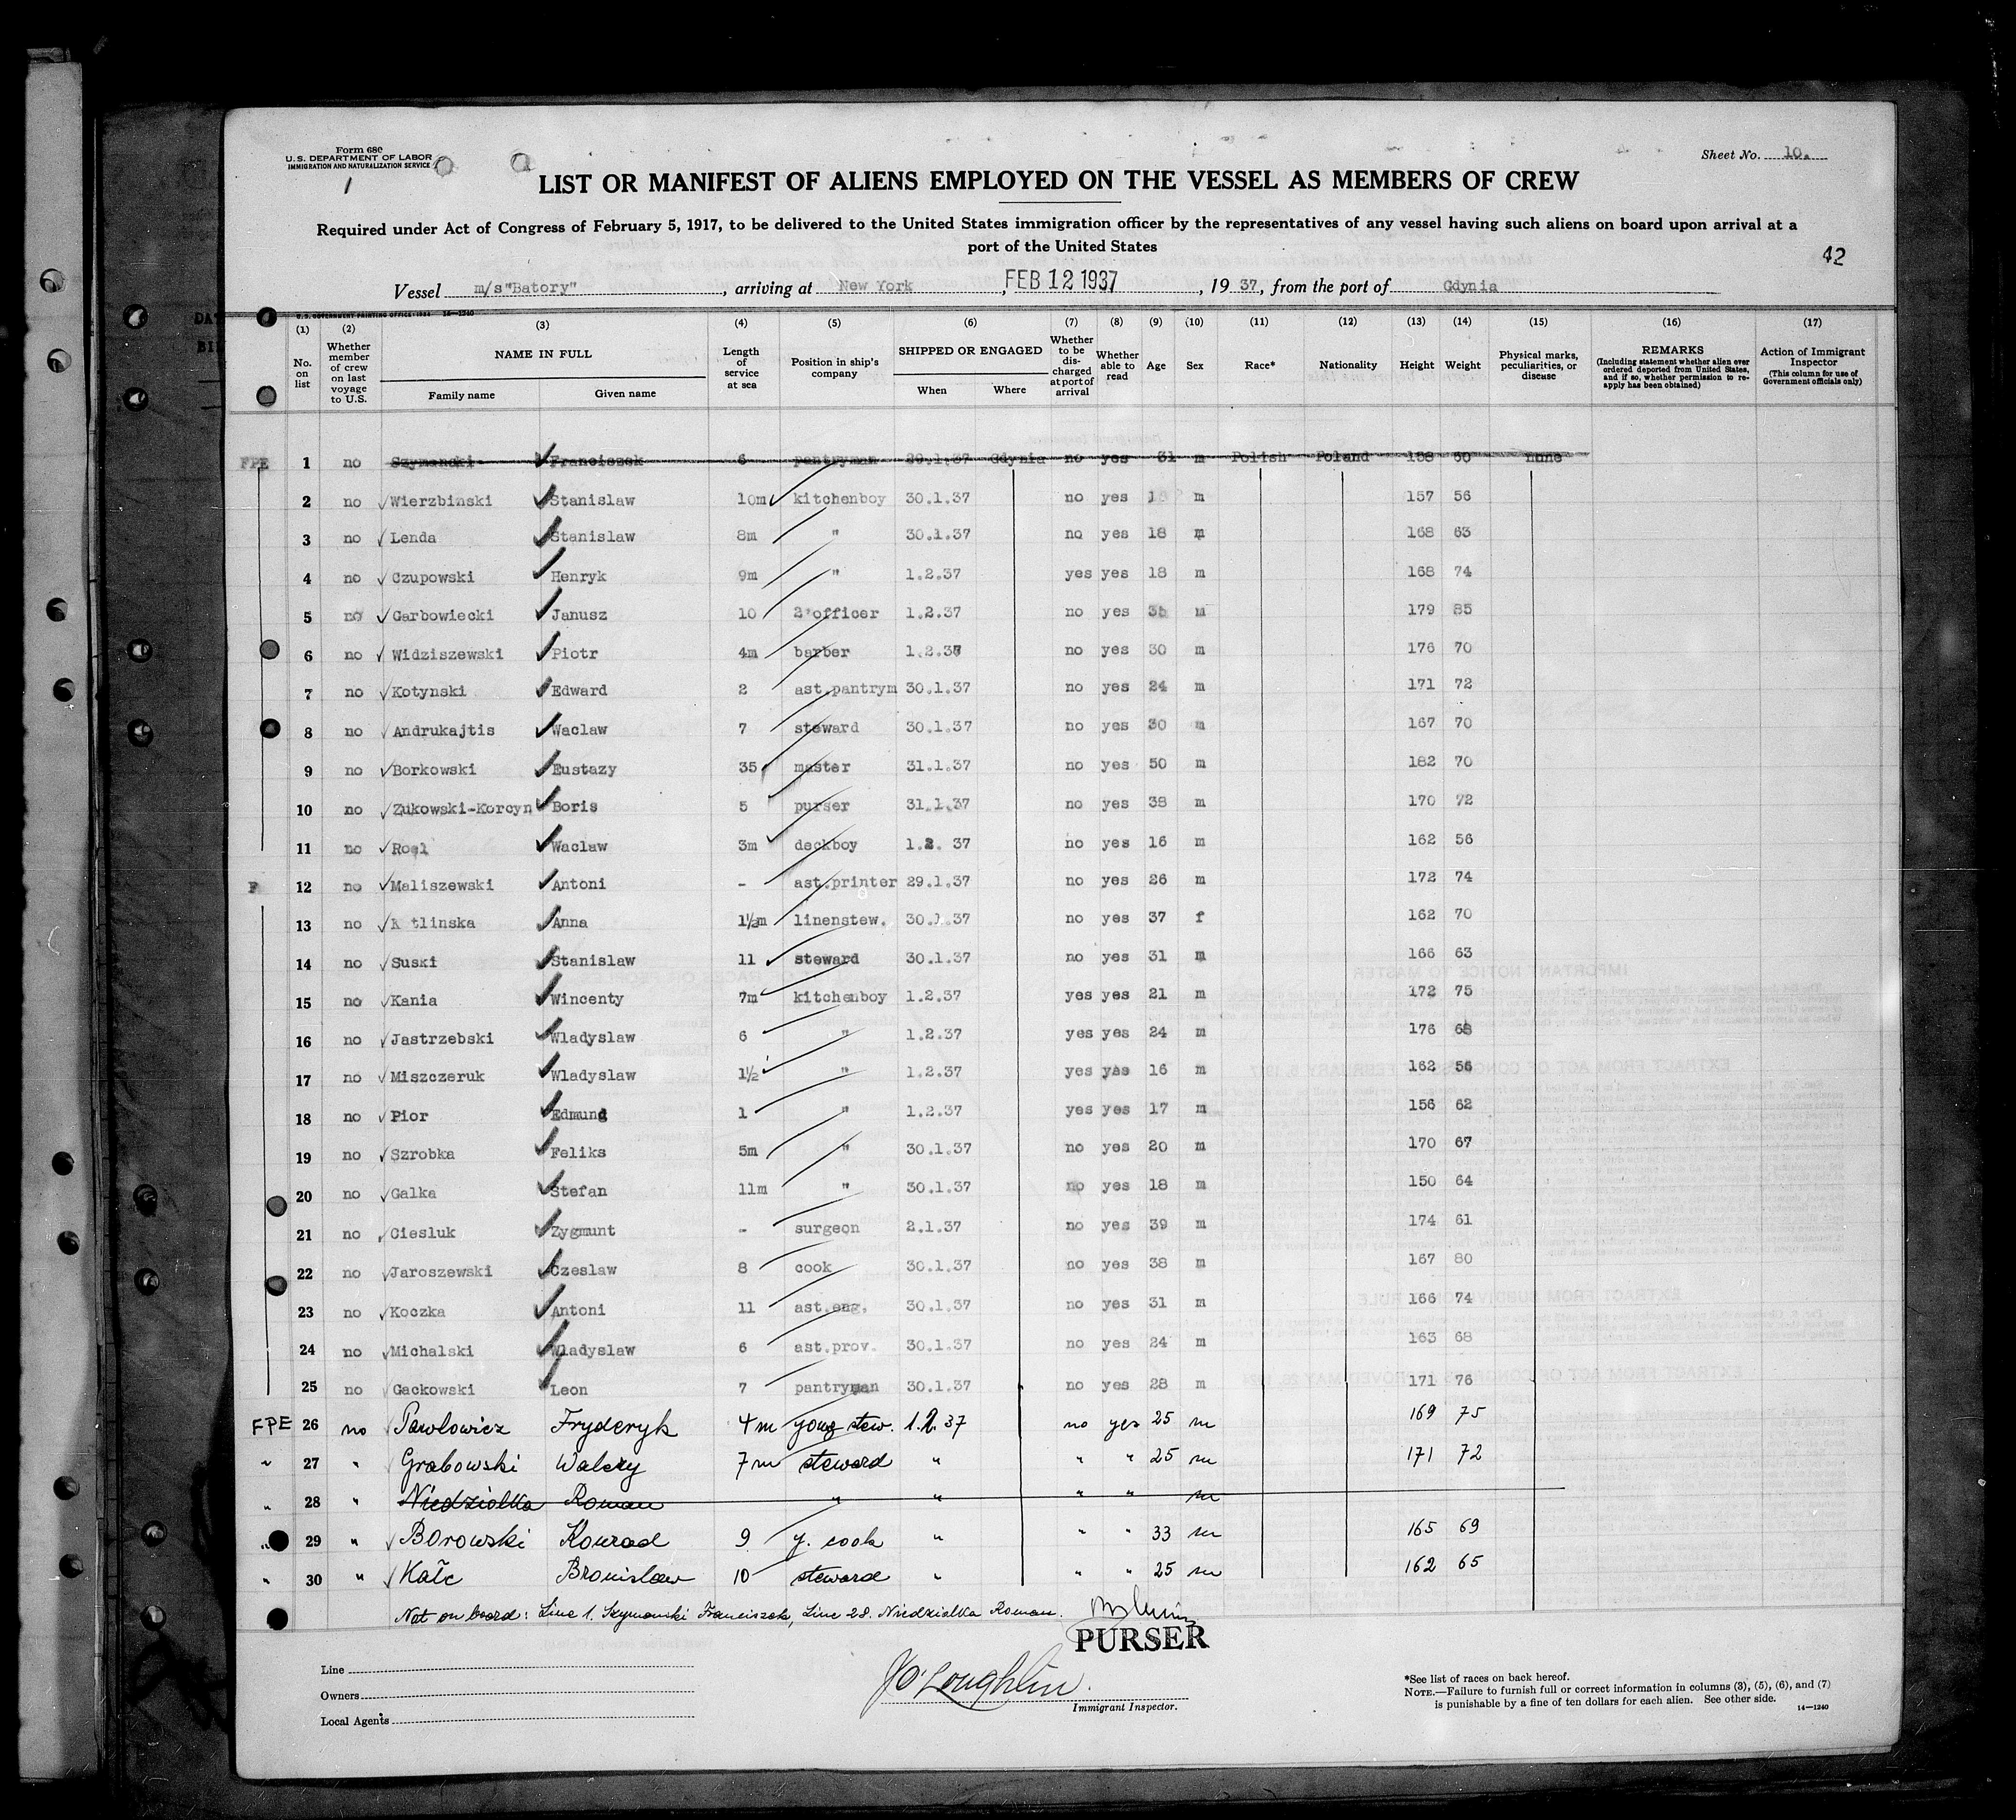 Form 680
U.S. DEPARTMENT OF LABOR
IMMIGRATION AND NATURALIZATION SERVICE
Sheet No. 10.
LIST OR MANIFEST OF ALIENS EMPLOYED ON THE VESSEL AS MEMBERS OF CREW
Required under Act of Congress of February 5, 1917, to be delivered to the United States immigration officer by the representatives of any vessel having such aliens on board upon arrival at a
port of the United States
42
Vessel m/s"Batory", arriving at New York, FEB 12 1937, 19 37, from the port of Gdynia
U.S. GOVERNMENT PRINTING OFFICE: 1934 14—1240
(1) (2) (3) (4) (5) (6) (7) (8) (9) (10) (11) (12) (13) (14) (15) (16) (17)
No. on list
Whether member of crew on last voyage to U.S.
NAME IN FULL
Family name Given name
Length of service at sea
Position in ship's company
SHIPPED OR ENGAGED
When Where
Whether to be discharged at port of arrival
Whether able to read
Age
Sex
Race*
Nationality
Height
Weight
Physical marks, peculiarities, or disease
REMARKS
(Including statement whether alien ever ordered deported from United States, and if so, whether permission to reapply has been obtained)
Action of Immigrant Inspector
(This column for use of Government officials only)
FPE 1 no Szymanski Franciszek 6 pantryman 29.1.37 Gdynia no yes 31 m Polish Poland 158 60 none
2 no Wierzbinski Stanislaw 10m kitchenboy 30.1.37 no yes m 157 56
3 no Lenda Stanislaw 8m " 30.1.37 no yes 18 m 168 63
4 no Czupowski Henryk 9m " 1.2.37 yes yes 18 m 168 74
5 no Garbowiecki Janusz 10 2'officer 1.2.37 no yes 35 m 179 85
6 no Widziszewski Piotr 4m barber 1.2.37 no yes 30 m 176 70
7 no Kotynski Edward 2 ast.pantrym 30.1.37 no yes 24 m 171 72
8 no Andrukajtis Waclaw 7 steward 30.1.37 no yes 30 m 167 70
9 no Borkowski Eustazy 35 master 31.1.37 no yes 50 m 182 70
10 no Zukowski-Korcyn Boris 5 purser 31.1.37 no yes 38 m 170 72
11 no Roel Waclaw 3m deckboy 1.2. 37 no yes 16 m 162 56
F 12 no Maliszewski Antoni - ast.printer 29.1.37 no yes 26 m 172 74
13 no Anna 1½m linenstew. 30.1.37 no yes 37 f 162 70
14 no Suski Stanislaw 11 steward 30.1.37 no yes 31 m 166 63
15 no Kania Wincenty 7m kitchenboy 1.2.37 yes yes 21 m 172 75
16 no Jastrzebski Wladyslaw 6 " 1.2.37 yes yes 24 m 176 68
17 no Miszczeruk Wladyslaw 1½ " 1.2.37 yes yes 16 m 162 56
18 no Pior Edmund 1 " 1.2.37 yes yes 17 m 156 62
19 no Szrobka Feliks 5m " 30.1.37 no yes 20 m 170 67
20 no Galka Stefan 11m " 30.1.37 no yes 18 m 150 64
21 no Ciesluk Zygmunt - surgeon 2.1.37 no yes 39 m 174 61
22 no Jaroszewski Czeslaw 8 cook 30.1.37 no yes 38 m 167 80
23 no Koczka Antoni 11 ast.eng. 30.1.37 no yes 31 m 166 74
24 no Michalski Wladyslaw 6 ast.prov. 30.1.37 no yes 24 m 163 68
25 no Gackowski Leon 7 pantryman 30.1.37 no yes 28 m 171 76
FPE 26 no Pawlowicz Fryderyk 4m young stew. 1.2.37 no yes 25 m 169 75
" 27 " Grabowski Walery 7m steward " " " 25 m 171 72
" 28 " Niedziolka Roman " " " " m
" 29 " Borowski Konrad 9 y. cook " " " 33 m 165 69
" 30 " Kałc Bronislaw 10 steward " " " 25 m 162 65
Not on board: Line 1. Szymanski Franciszek, Line 28. Niedziolka Roman.
PURSER
Line
Owners
Local Agents
J O'Loughlin.
Immigrant Inspector.
*See list of races on back hereof.
NOTE.—Failure to furnish full or correct information in columns (3), (5), (6), and (7)
is punishable by a fine of ten dollars for each alien. See other side.
14—1240